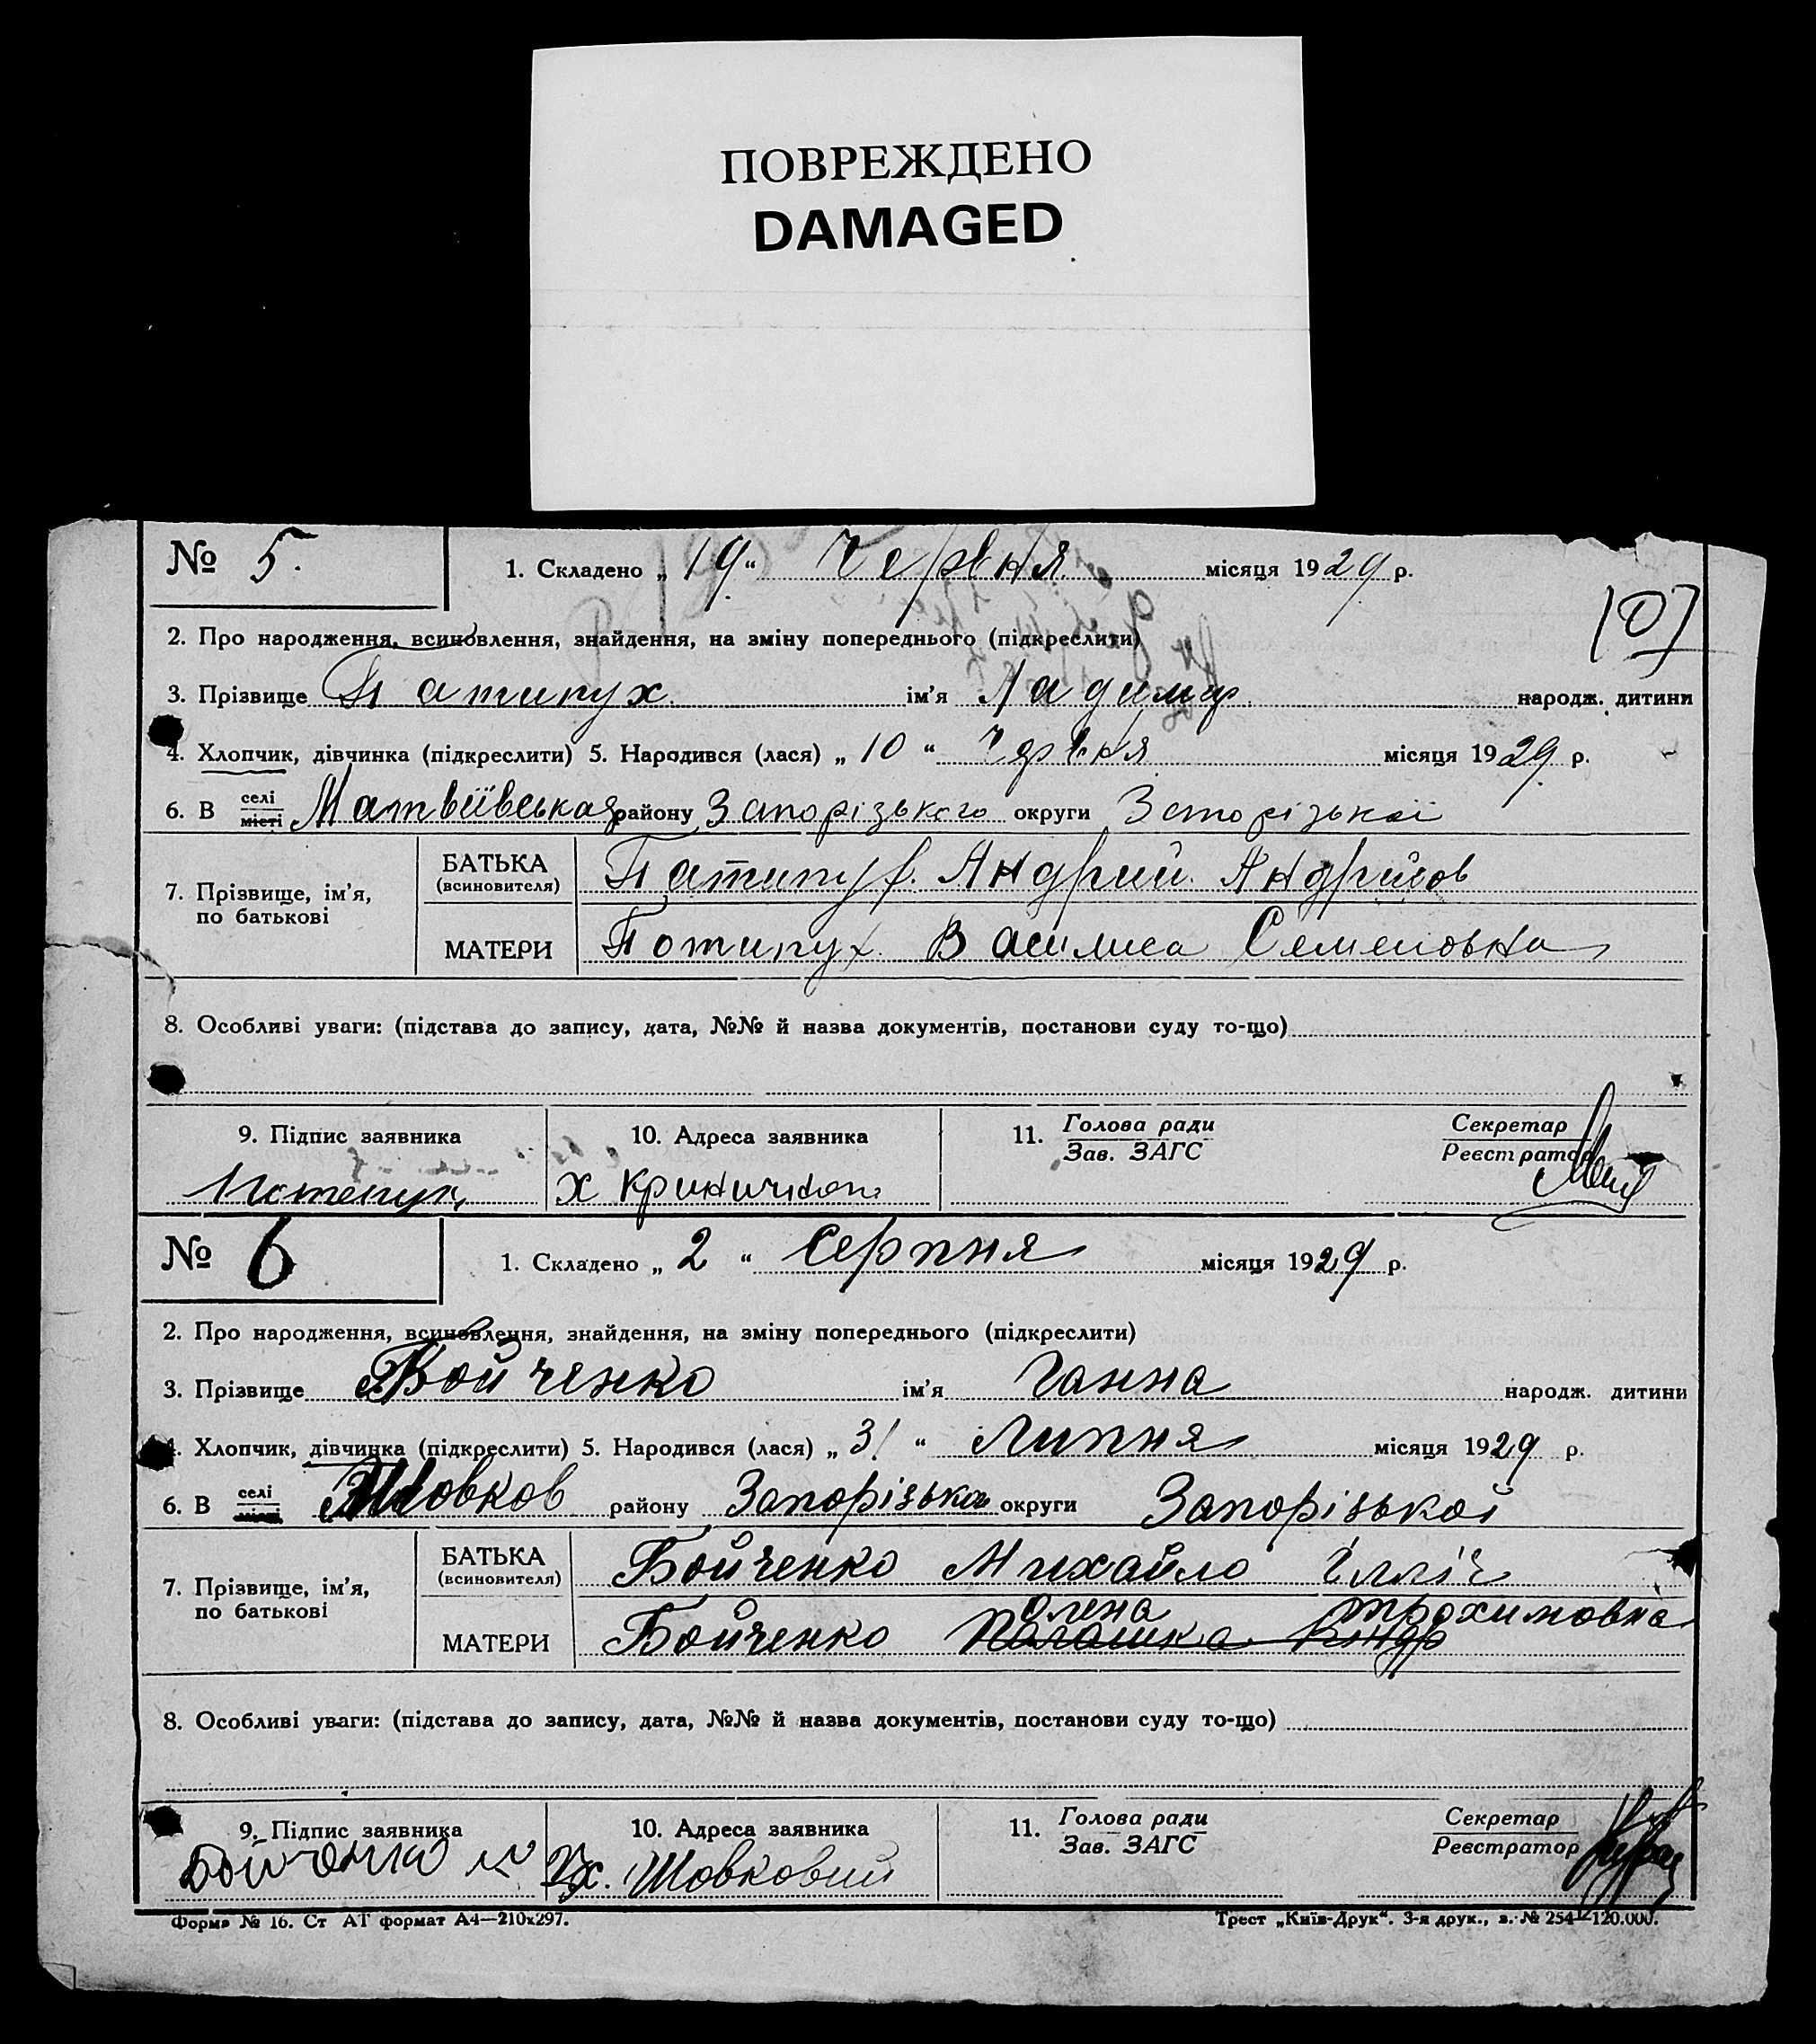 ПОВРЕЖДЕНО
DAMAGED
№ 5. 1. Складено „19“ Червня місяця 1929 р.
2. Про народження, всиновлення, знайдення, на зміну попереднього (підкреслити)
3. Прізвище Патипух ім'я Ладимир народж. дитини
4. Хлопчик, дівчинка (підкреслити) 5. Народився (лася) „10“ Червня місяця 1929 р.
6. В селі місті Матвіївська району Запорізького округи Запорізької
7. Прізвище, ім'я, по батькові
БАТЬКА (всиновителя) Патипух Андрий Андрийов
МАТЕРИ Потипух Василиса Семеновна
8. Особливі уваги: (підстава до запису, дата, №№ й назва документів, постанови суду то-що)
9. Підпис заявника 10. Адреса заявника 11. Голова ради Зав. ЗАГС Секретар Реєстратор
х
№ 6 1. Складено „2“ Серпня місяця 1929 р.
2. Про народження, всиновлення, знайдення, на зміну попереднього (підкреслити)
3. Прізвище Бойченко ім'я Ганна народж. дитини
4. Хлопчик, дівчинка (підкреслити) 5. Народився (лася) „31“ Липня місяця 1929 р.
6. В селі Шовков району Запорізька округи Запорізької
7. Прізвище, ім'я, по батькові
БАТЬКА (всиновителя) Бойченко Михайло Ілліч
Олена Трохимовна
МАТЕРИ Бойченко Палашка
8. Особливі уваги: (підстава до запису, дата, №№ й назва документів, постанови суду то-що)
9. Підпис заявника 10. Адреса заявника 11. Голова ради Зав. ЗАГС Секретар Реєстратор
Бойченко м х. Шовковий
Форма № 16. Ст АТ формат А4—210х297. Трест „Київ-Друк“. 3-я друк., з. № 254—120.000.